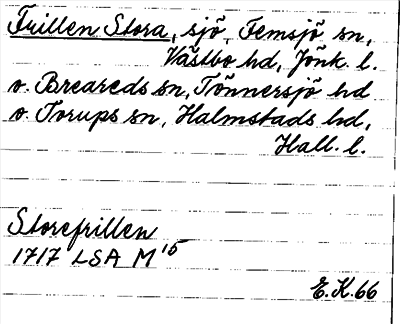 Frillen Stora, sjö, Femsjö sn,
Västbo hd, Jönk. l.
o. Breareds sn, Tönnersjö hd
o. Torups sn, Halmstads hd,
Hall. l.
Storefrillen
1717 LSA M 15
E.K. 66